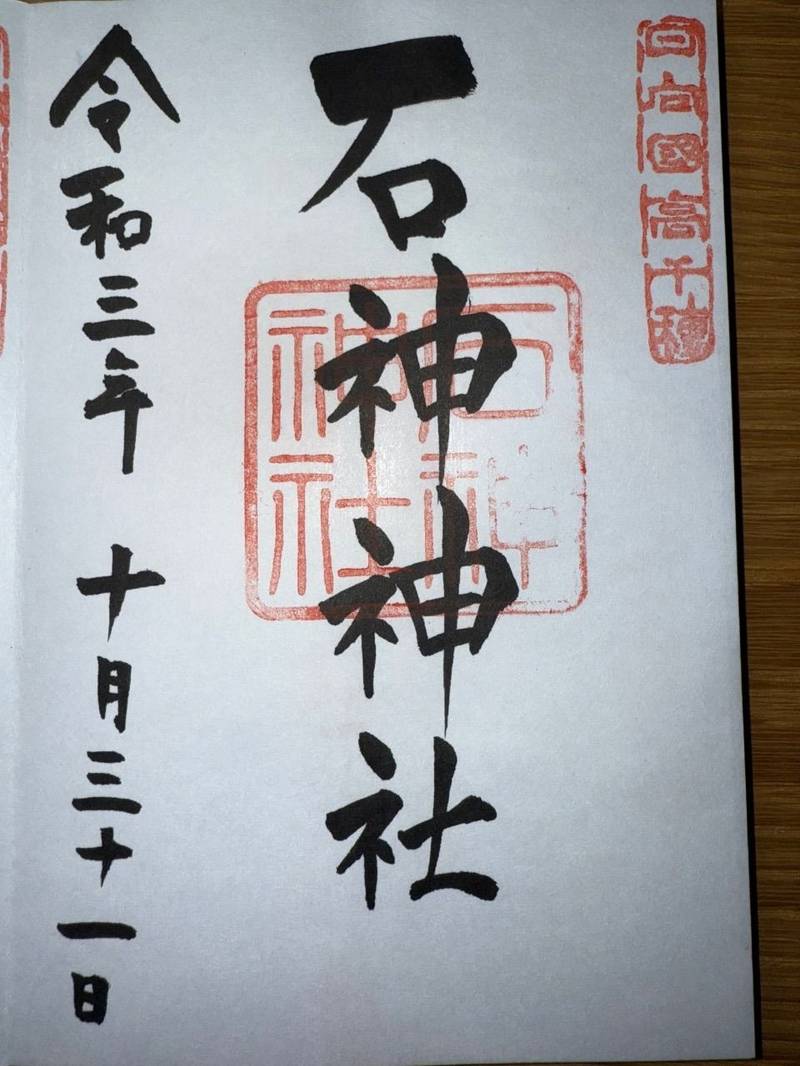 日向國高千穂
石神神社
石神神社
令和三年 十月三十一日